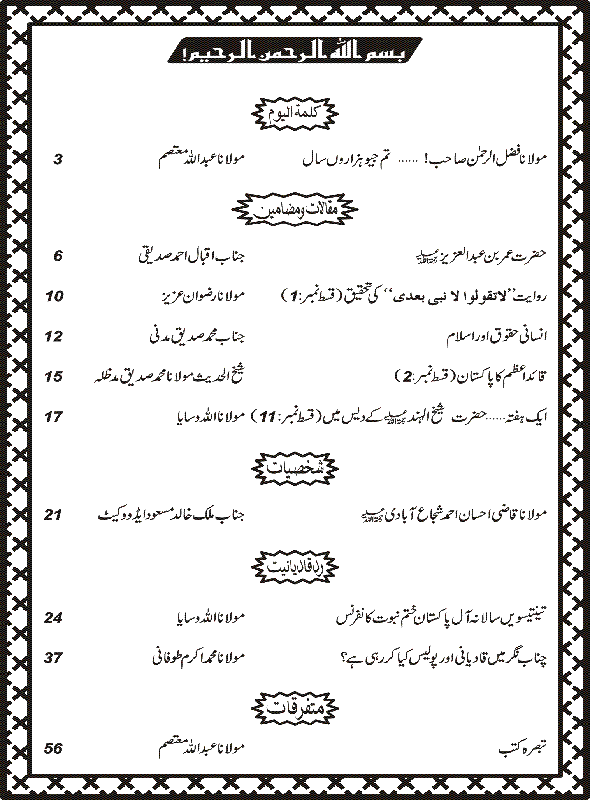 بسم الله الرحمن الرحيم!
كلمة اليوم
مولانا فضل الرحمٰن صاحب! ...... تم جیو ہزاروں سال مولانا عبداللہ معتصم 3
مقالات ومضامین
حضرت عمر بن عبدالعزیزؒ جناب اقبال احمد صدیقی 6
روایت ”لاتقولوا لا نبی بعدی“ کی تحقیق (قسط نمبر:1) مولانا رضوان عزیز 10
انسانی حقوق اور اسلام جناب محمد صدیق مدنی 12
قائد اعظم کا پاکستان (قسط نمبر:2) شیخ الحدیث مولانا محمد صدیق مدظلہ 15
ایک ہفتہ...... حضرت شیخ الہندؒ کے دیس میں (قسط نمبر:11) مولانا اللہ وسایا 17
شخصیات
مولانا قاضی احسان احمد شجاع آبادیؒ جناب ملک خالد مسعود ایڈووکیٹ 21
ردقادیانیت
تینتیسویں سالانہ آل پاکستان ختم نبوت کانفرنس مولانا اللہ وسایا 24
چناب نگر میں قادیانی اور پولیس کیا کر رہی ہے؟ مولانا محمد اکرم طوفانی 37
متفرقات
تبصرہ کتب مولانا عبداللہ معتصم 56